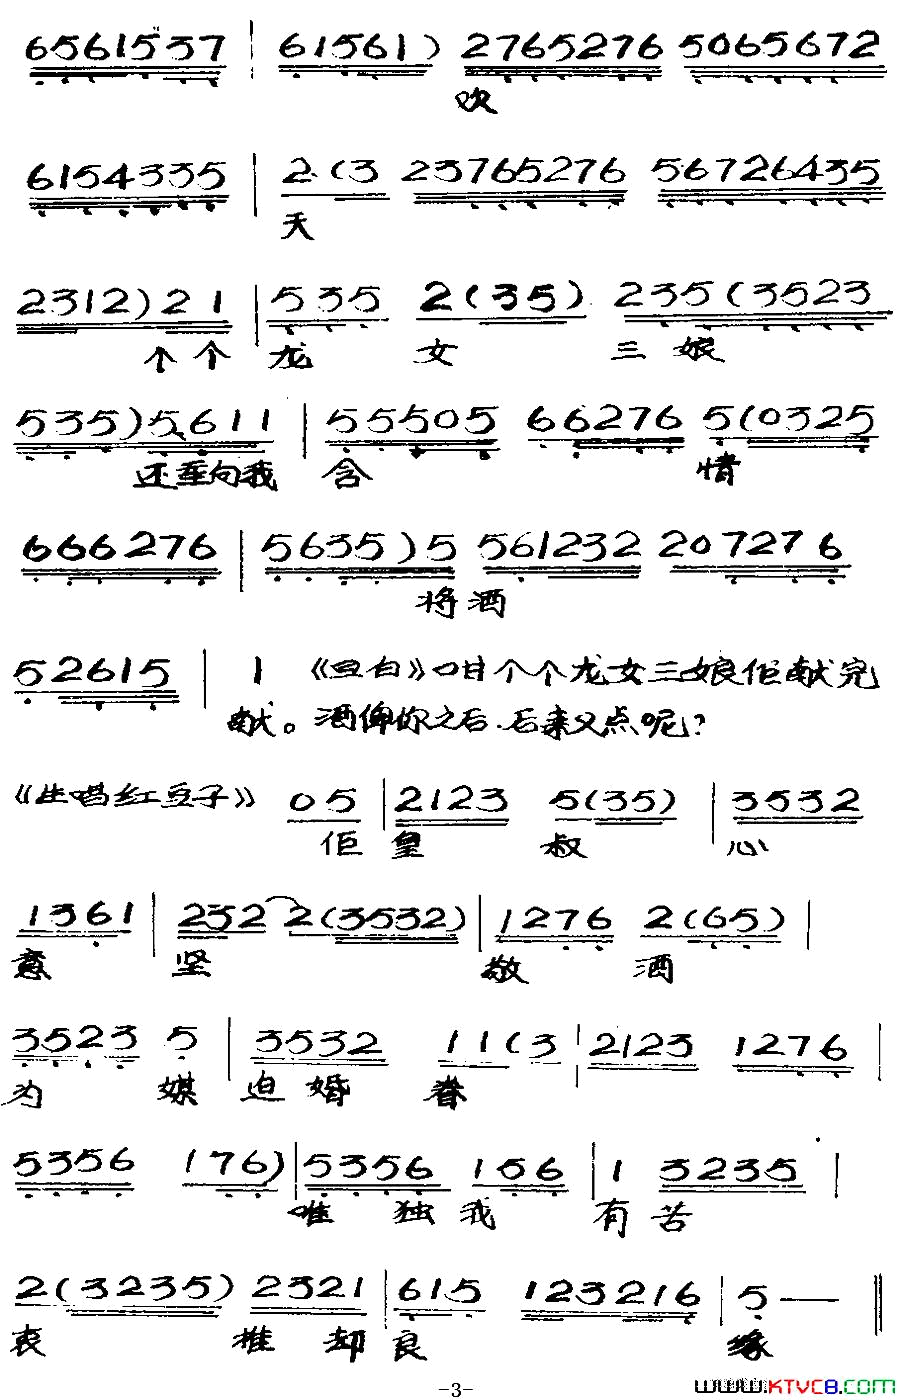 6561537 | 61561) 2765276 5065672
吹
6154335 | 2·(3 23765276 56726435
天
2312)21 | 535 2(35) 235(3523
个个 龙 女 三娘
535)5611 | 55505 66276 5(0325
还垂向我 含 情
666276 | 5635)5 561232 207276
将酒
52615 | 1 《旦白》咁个个龙女三娘佢献完
献。酒俾你之后.后来又点呢?
《生唱红豆子》 05 | 2123 5(35) | 3532
佢 皇 叔 心
1361 | 232 2(3532) | 1276 2(65) |
意 坚 敬 酒
3523 5 | 3532 11(3 | 2123 1276 |
为 媒 迫 婚 眷
5356 176) | 5356 156 | 1 3235 |
唯 独 我 有 苦
2(3235) 2321 | 615 123216 | 5 —— ‖
衷 推 却 良 缘
-3-
www.KTVC8.com